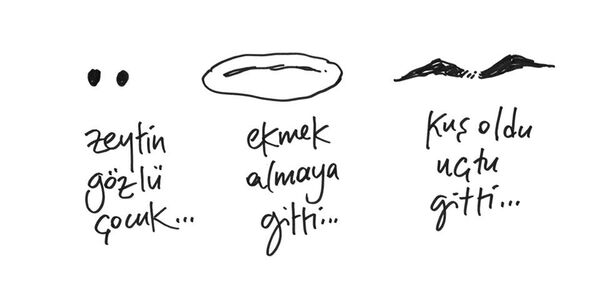 zeytin
gözlü
çocuk...
ekmek
almaya
gitti...
kuş oldu
uçtu
gitti...